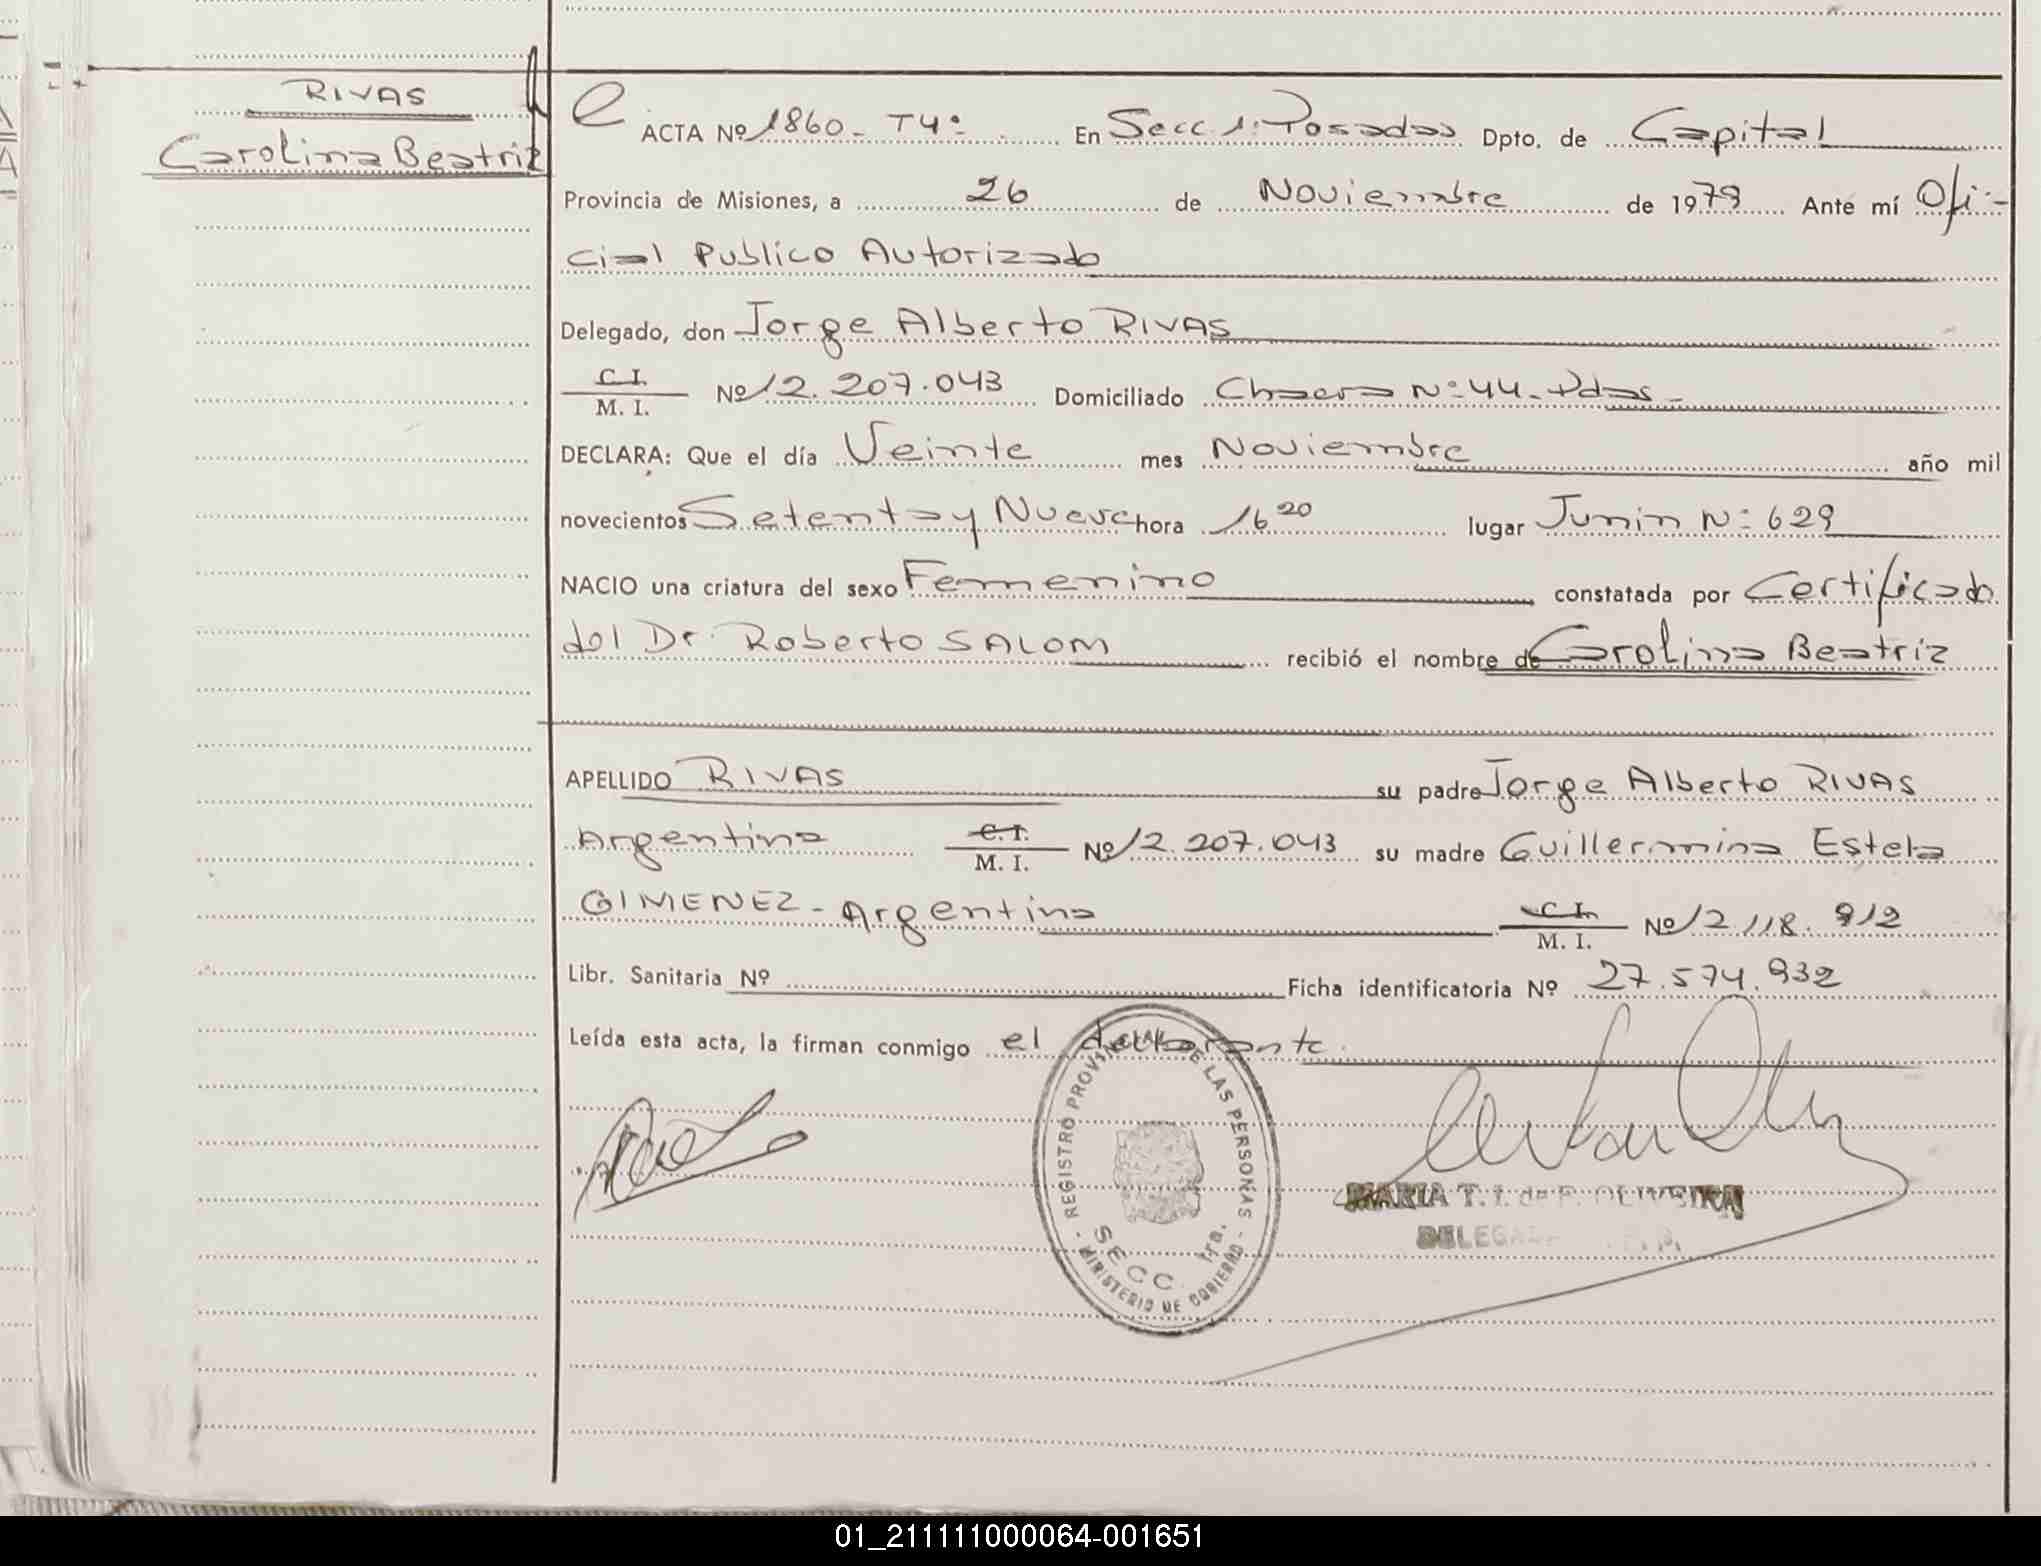 RIVAS
Carolina Beatriz
ACTA Nº 1860 - T4º En Secc. 1º Posadas Dpto. de Capital
Provincia de Misiones, a 26 de Noviembre de 1979 Ante mí Ofi-
cial Publico Autorizado
Delegado, don Jorge Alberto RIVAS
C. I.
M. I. Nº 12.207.043 Domiciliado Chacra Nº 44 - Pdas -
DECLARA: Que el día Veinte mes Noviembre año mil
novecientos Setenta y Nueve hora 16 20 lugar Junin Nº 629
NACIO una criatura del sexo Femenino constatada por Certificado
del Dr. Roberto SALOM recibió el nombre de Carolina Beatriz
APELLIDO RIVAS su padre Jorge Alberto RIVAS
Argentina C. I. M. I. Nº 12.207.043 su madre Guillermina Estela
GIMENEZ - Argentina C. I. M. I. Nº 12.118.912
Libr. Sanitaria Nº Ficha identificatoria Nº 27.574.932
Leída esta acta, la firman conmigo el declarante.
REGISTRO PROVINCIAL DE LAS PERSONAS
SECC. 1ra.
- MINISTERIO DE GOBIERNO -
MARIA T. I. de F. OLIVEIRA
01_211111000064-001651